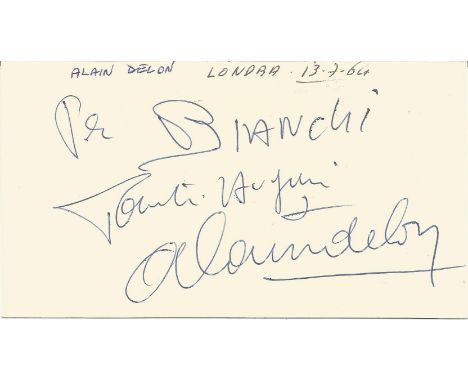 ALAIN DELON LONDRA. 13-7-64
Per BIANCHI
Tanti Auguri
Alain Delon